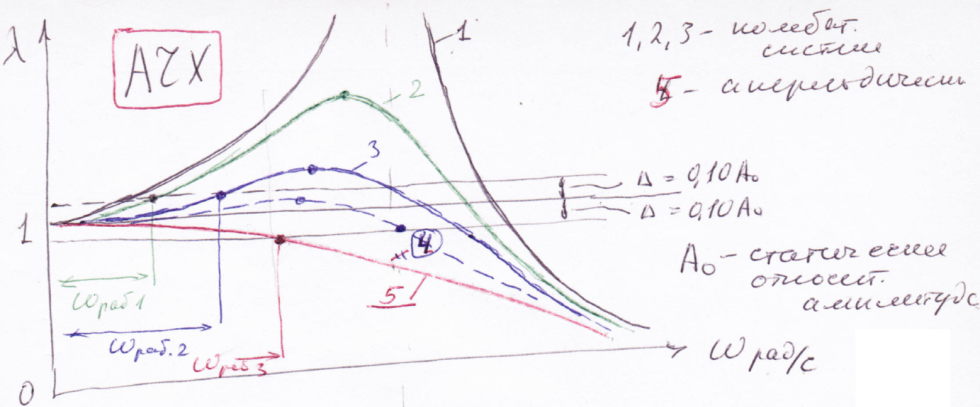 λ
АЧХ
1
2
3
4
5
1,2,3 - колебат.
систем
5 - апериодическ
Δ = 0,10 A₀
Δ = 0,10 A₀
A₀ - статическая
относит.
амплитуда
1
ωраб1
ωраб.2
ωраб3
ω рад/с
0